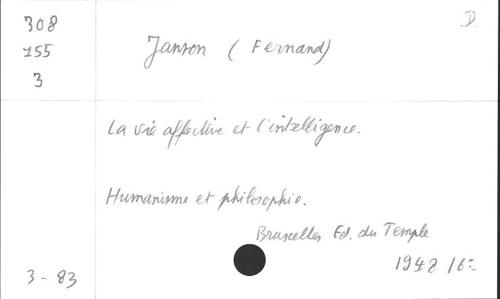 308
155
3
D.
Janson (Fernand)
La vie affective et l'intelligence.
Humanisme et philosophie.
Bruxelles Ed. du Temple
1948
3-83